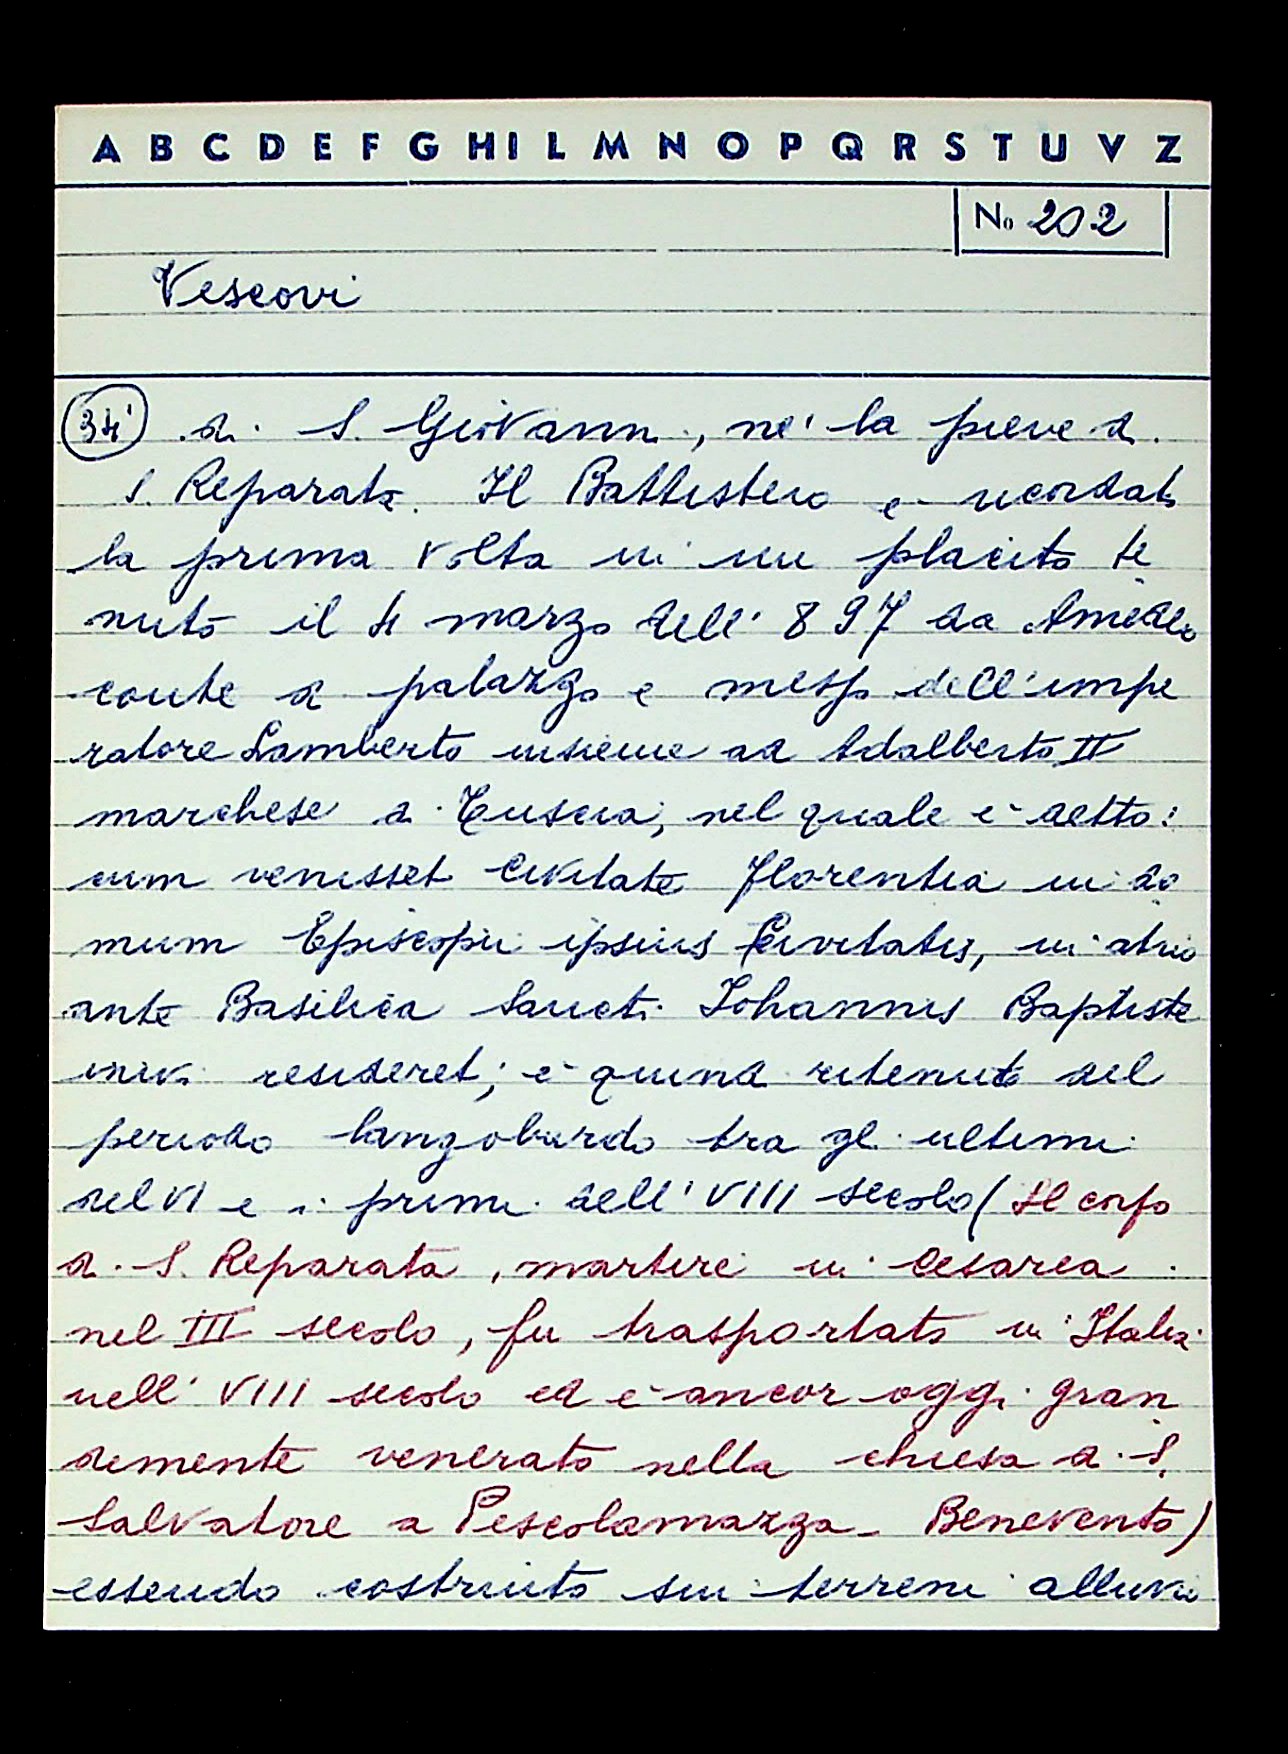 A B C D E F G H I L M N O P Q R S T U V Z
No 202
Vescovi
34' di S. Giovanni, nè la pieve di
S. Reparata. Il Battistero è ricordato
la prima volta in un placito te
nuto il 4 marzo dell' 897 da Amedeo
conte di palazzo e messo dell'impe
ratore Lamberto insieme ad Adalberto II
marchese di Tuscia, nel quale è detto:
cum venisset Civitate Florentia in do
mum Episcopii ipsius Civitatis, in atrio
ante Basilica Sancti Johannis Baptiste
inivi resideret; è quindi ritenuto del
periodo langobardo tra gli ultimi
del VI e i primi dell' VIII secolo (Il corpo
di S. Reparata, martire in Cesarea
nel III secolo, fu trasportato in Italia
nell' VIII secolo ed è ancor oggi gran
demente venerato nella chiesa di S.
Salvatore a Pescolamazza - Benevento)
essendo costruito su terreni alluvio